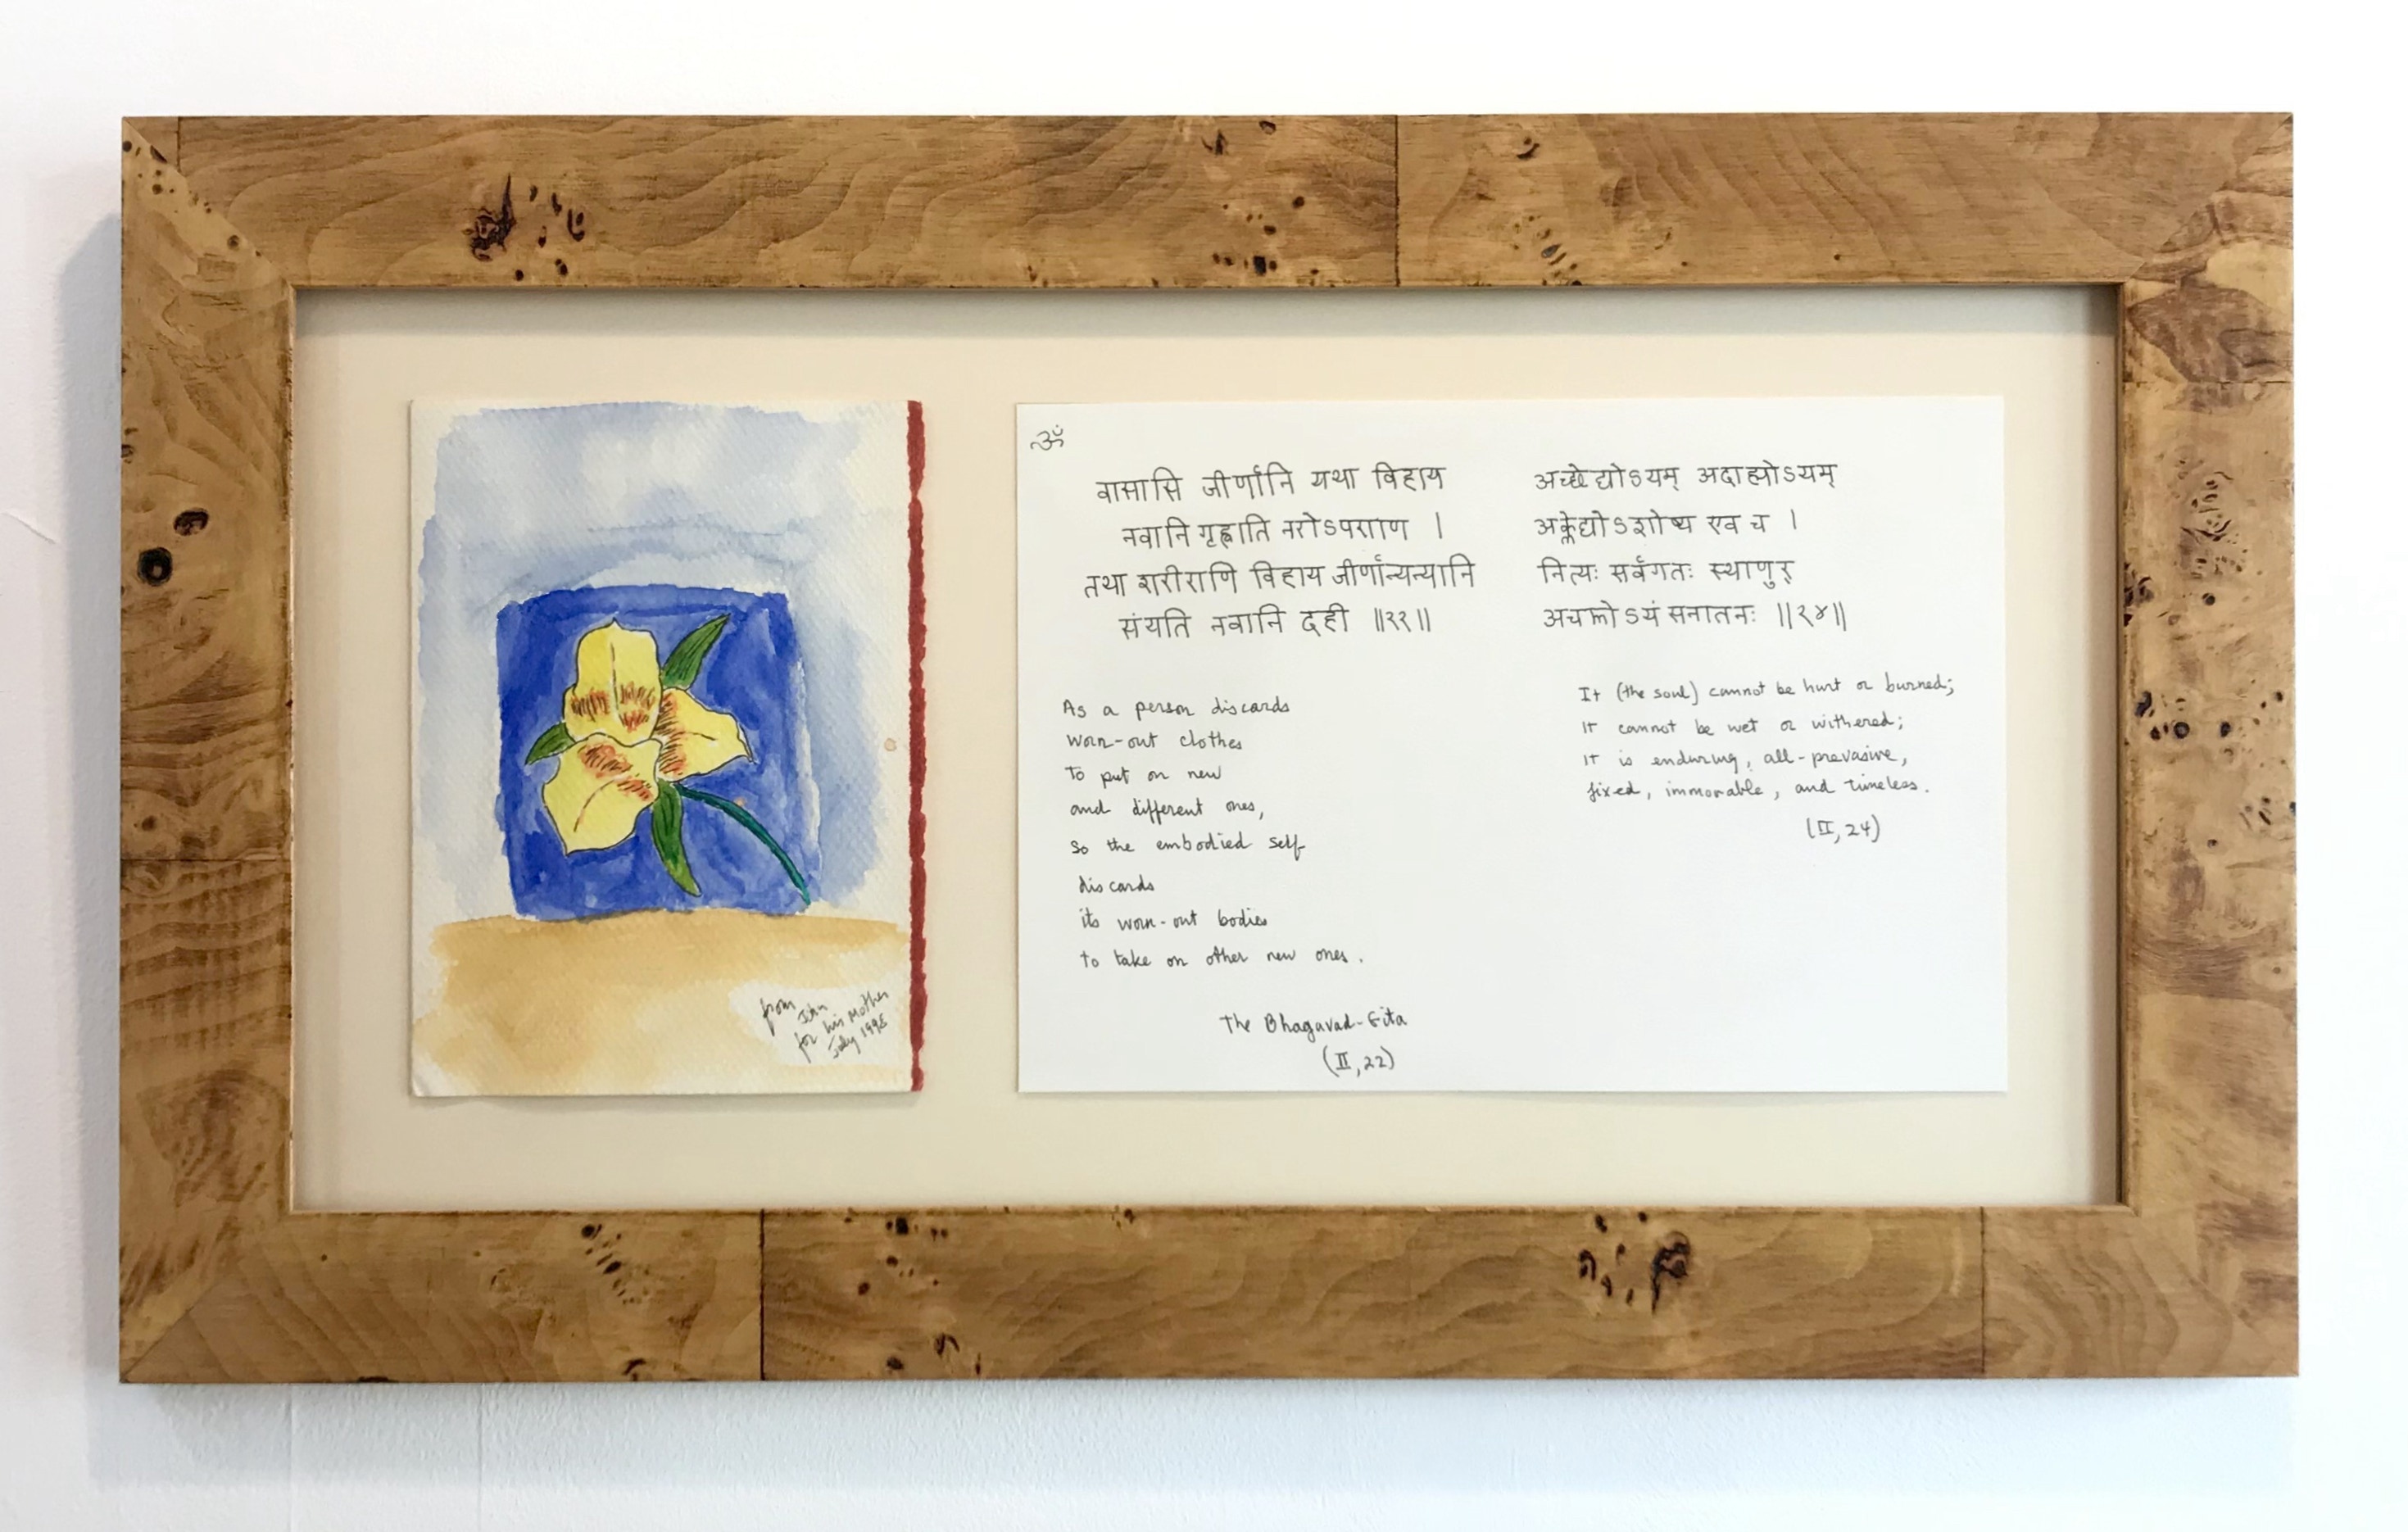 from
John
for his Mother
July 1995
ॐ
वासासि जीर्णानि यथा विहाय
नवानि गृह्णाति नरोऽपराणि ।
तथा शरीराणि विहाय जीर्णान्यन्यानि
संयति नवानि दही ॥२२॥
As a person discards
worn-out clothes
to put on new
and different ones,
so the embodied self
discards
its worn-out bodies
to take on other new ones.
The Bhagavad-Gita
(II, 22)
अच्छेद्योऽयम् अदाह्योऽयम्
अक्लेद्योऽशोष्य एव च ।
नित्यः सर्वगतः स्थाणुर्
अचलोऽयं सनातनः ॥२४॥
It (the soul) cannot be hurt or burned;
it cannot be wet or withered;
it is enduring, all-prevasive,
fixed, immovable, and timeless.
(II, 24)